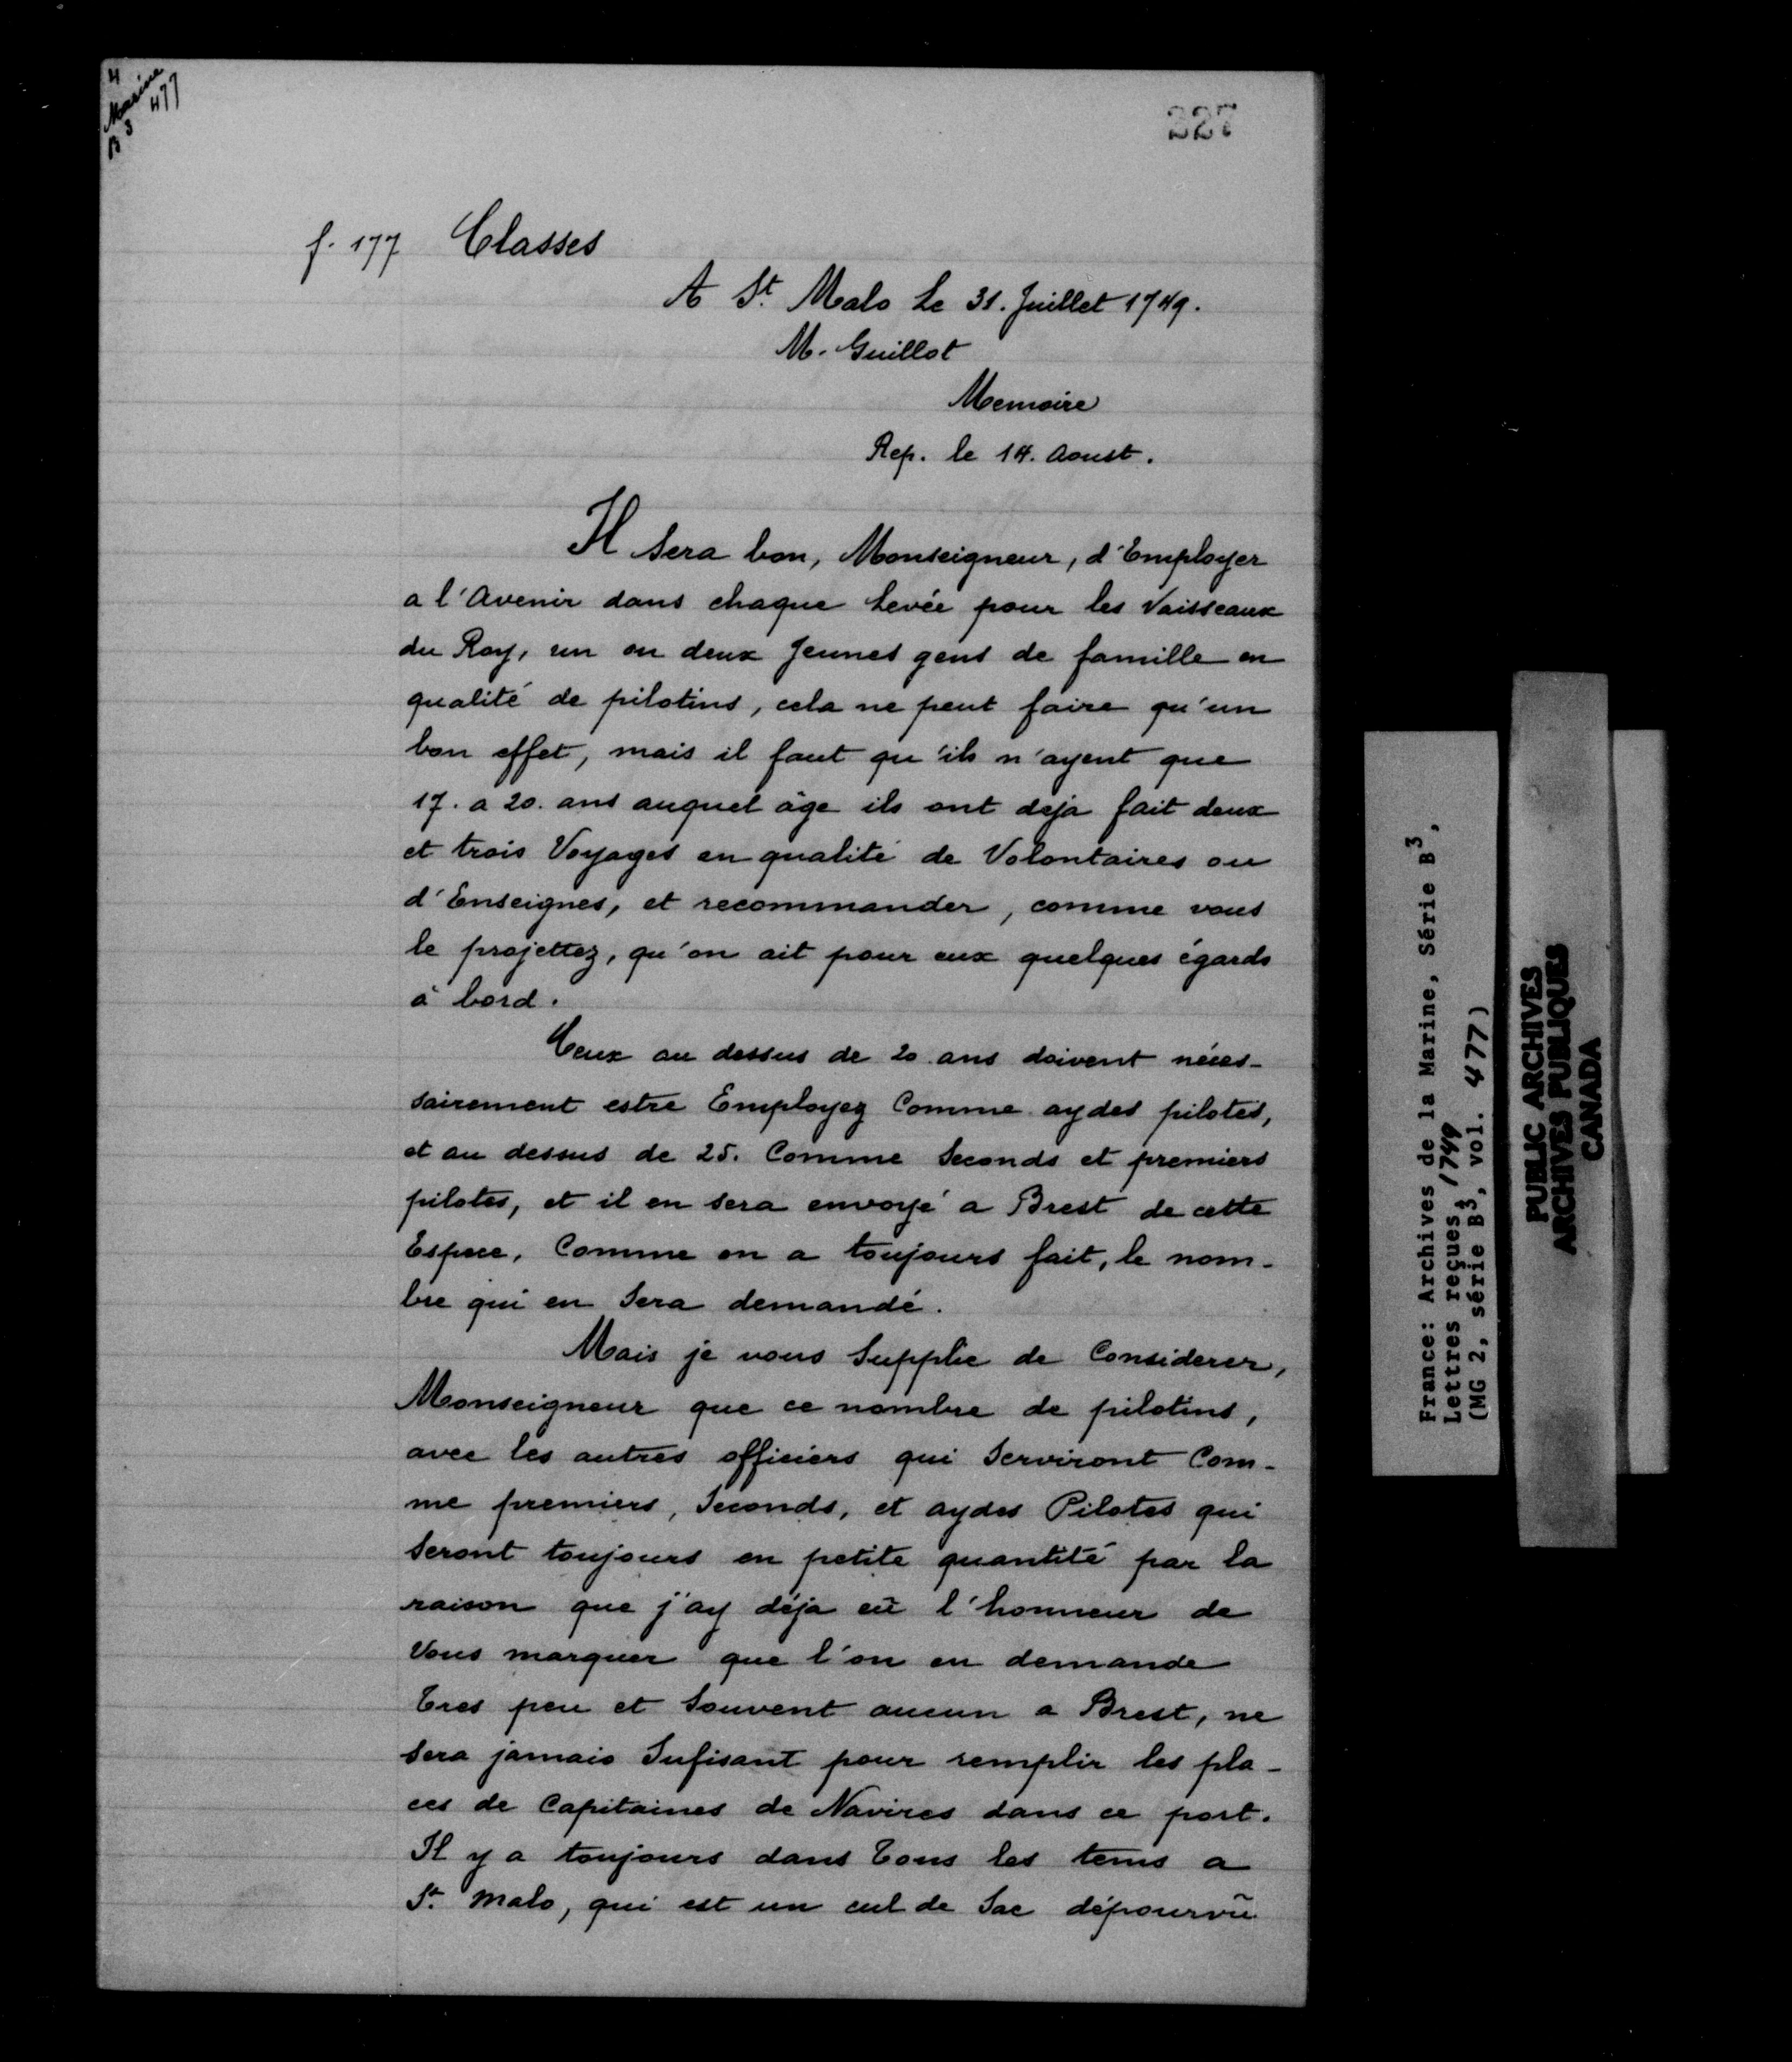 4
Marine
B3 477
227
f. 177 Classes
A St. Malo Le 31. Juillet 1749.
M. Guillot
Memoire
Rep. le 14. Aoust.
Il Sera bon, Monseigneur, d'Employer
a l'Avenir dans chaque Levée pour les Vaisseaux
du Roy, un ou deux Jeunes gens de famille en
qualité de pilotins, cela ne peut faire qu'un
bon effet, mais il faut qu'ils n'ayent que
17. a 20. ans auquel âge ils ont deja fait deux
et trois Voyages en qualité de Volontaires ou
d'Enseignes, et recommander, comme vous
le projettez, qu'on ait pour eux quelques égards
à bord.
Ceux au dessus de 20 ans doivent néces-
sairement estre Employez Comme aydes pilotes,
et au dessus de 25. Comme Seconds et premiers
pilotes, et il en sera envoyé a Brest de cette
Espece, Comme on a toujours fait, le nom-
bre qui en Sera demandé.
Mais je vous Supplie de Considerer,
Monseigneur que ce nombre de pilotins,
avec les autres officiers qui Serviront Com-
me premiers, Seconds, et aydes Pilotes qui
Seront toujours en petite quantité par la
raison que j'ay déja eû l'honneur de
Vous marquer que l'on en demande
Tres peu et Souvent aucun a Brest, ne
Sera jamais Sufisant pour remplir les pla-
ces de Capitaines de Navires dans ce port.
Il y a toujours dans Tous les tems a
St. Malo, qui est un cul de Sac dépourvû
France: Archives de la Marine, Série B3,
Lettres reçues, 1749
(MG 2, série B3, vol. 477)
PUBLIC ARCHIVES
ARCHIVES PUBLIQUES
CANADA